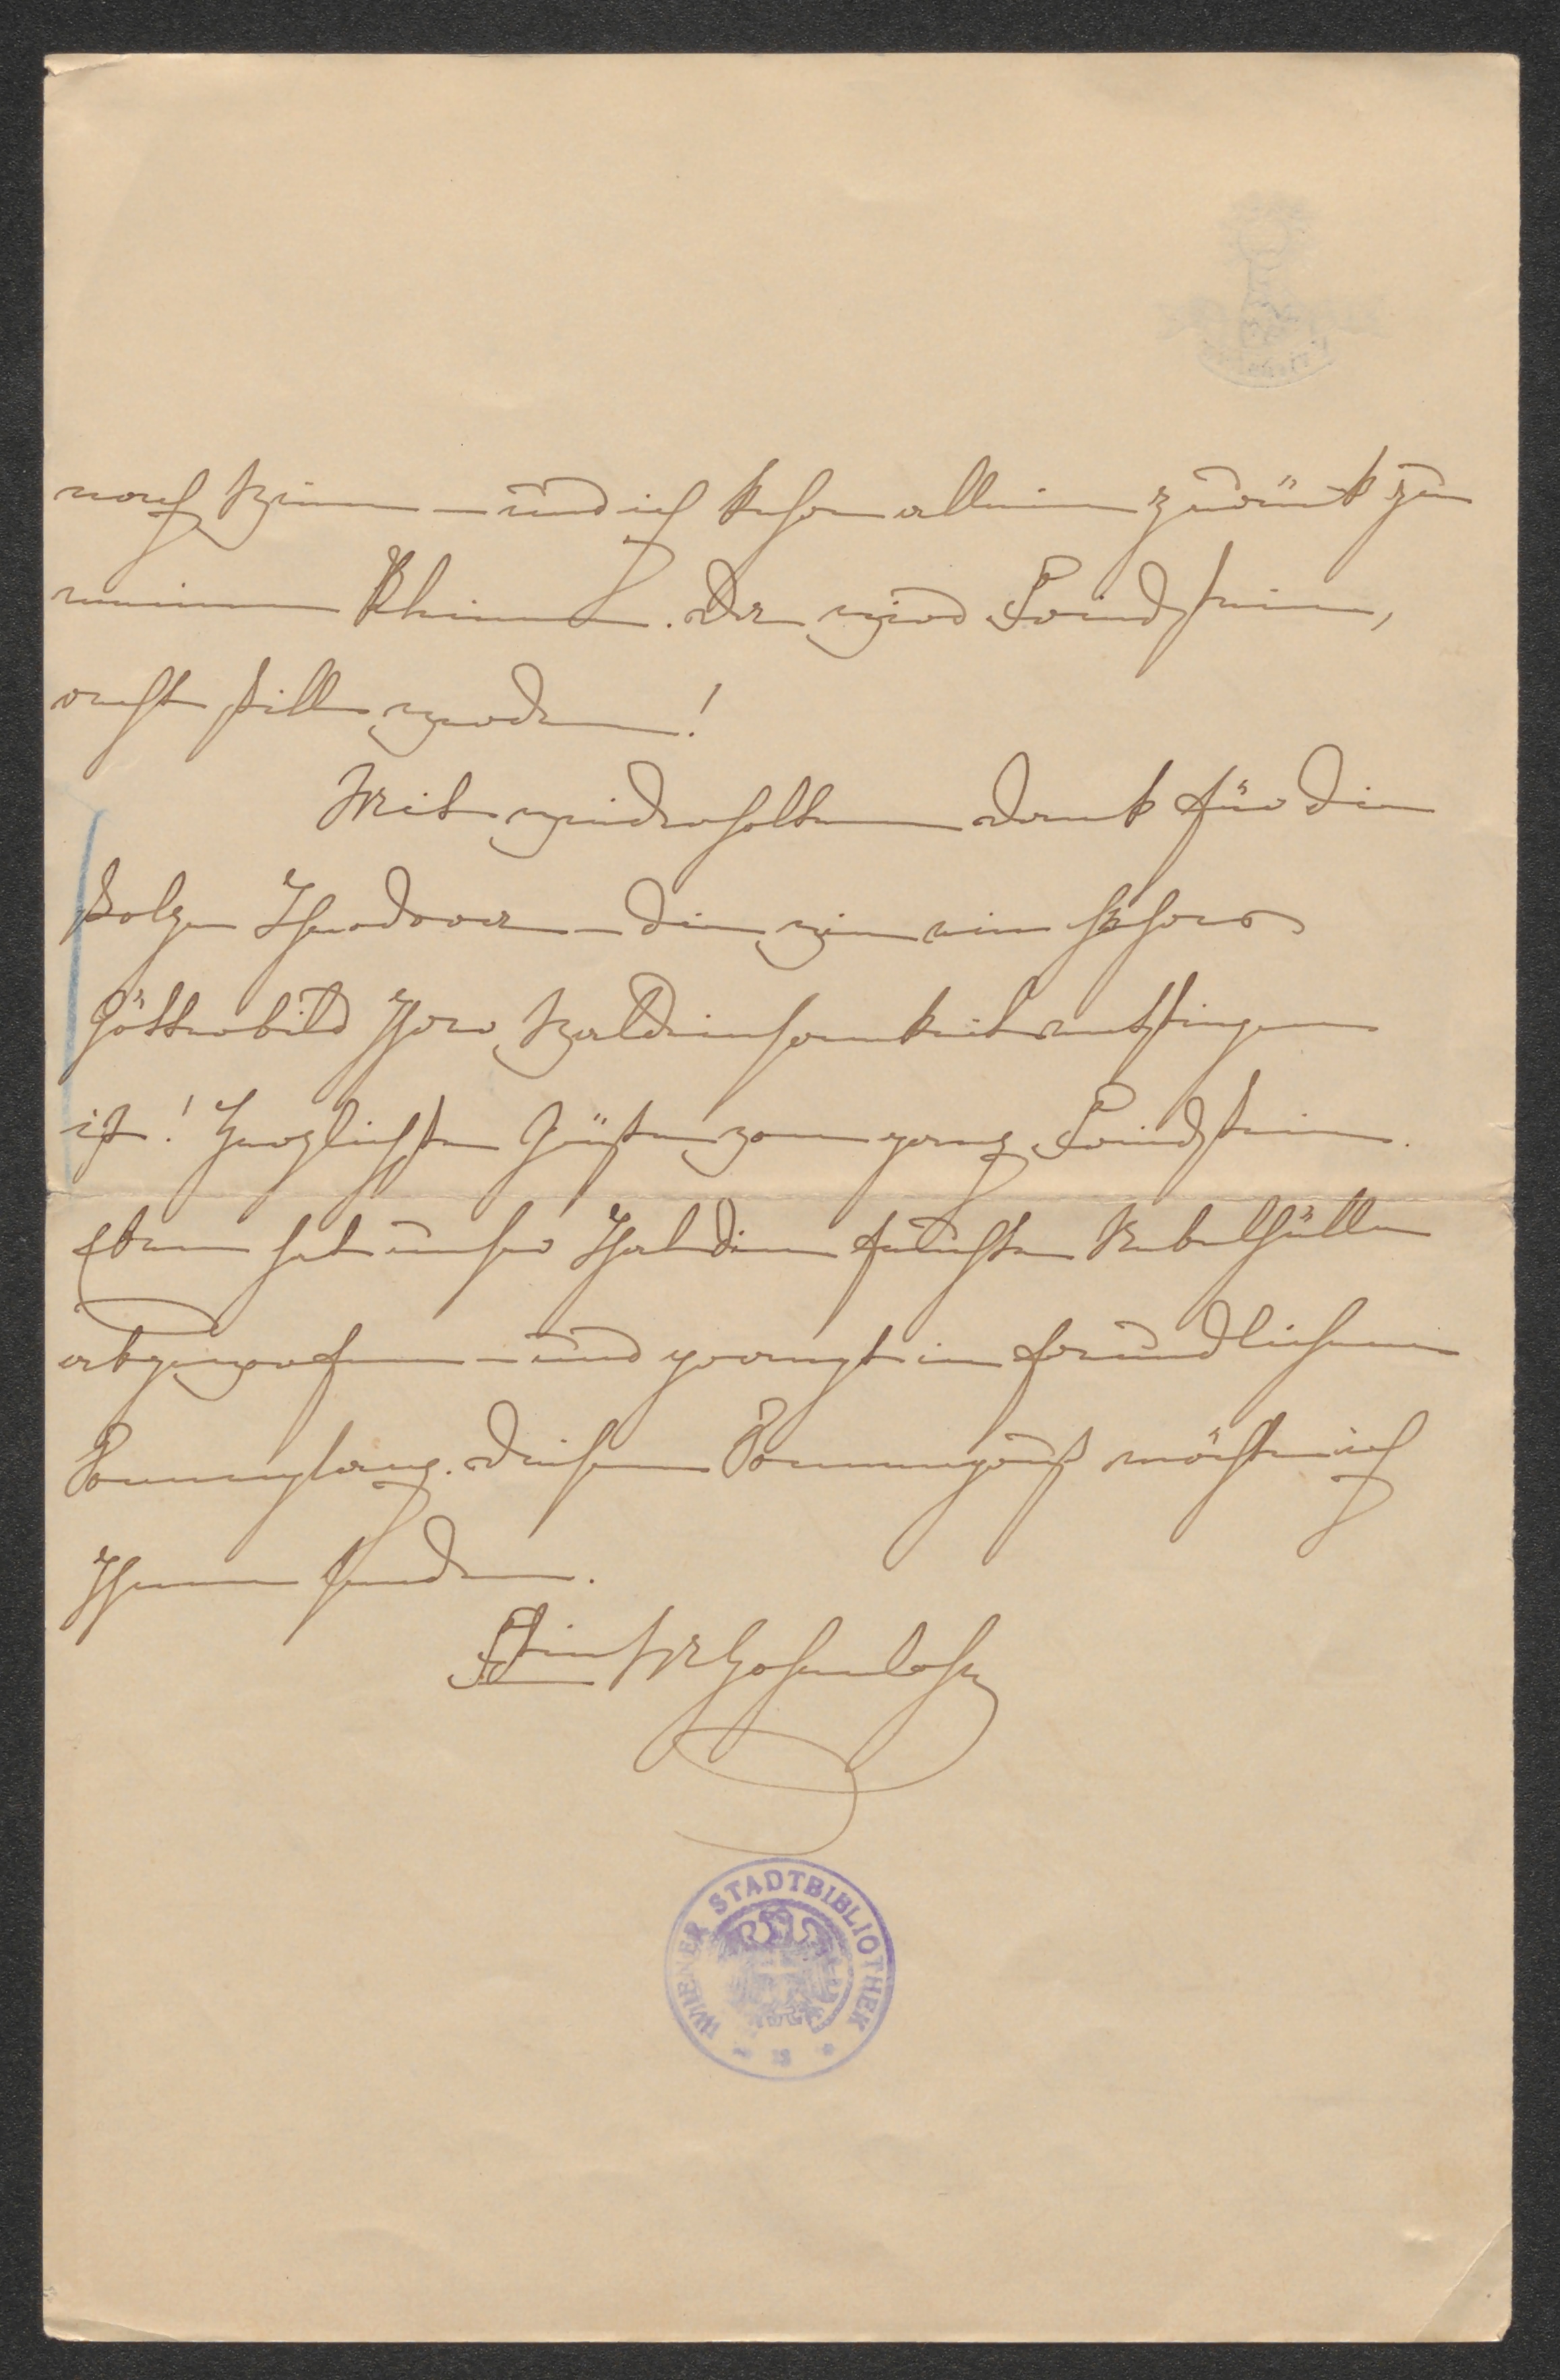 nach Wien – und ich kehre allein zurück zu
meinen Kleinen. Da wird Friedstein,
recht still werden!
Mit wiederholtem Dank für die
stolze Theodora – die wie ein hehres
Götterbild Ihrer Waldeinsamkeit entstiegen
ist! Herzlichste Grüße von ganz Friedstein.
Eben hat unser Thal die feuchten Nebelhüllen
abgeworfen – und prangt im freundlichen
Sonnenglanz. Diesen Sonnengruß möchte ich
Ihnen senden.
Fstin M Hohenlohe
WIENER STADTBIBLIOTHEK